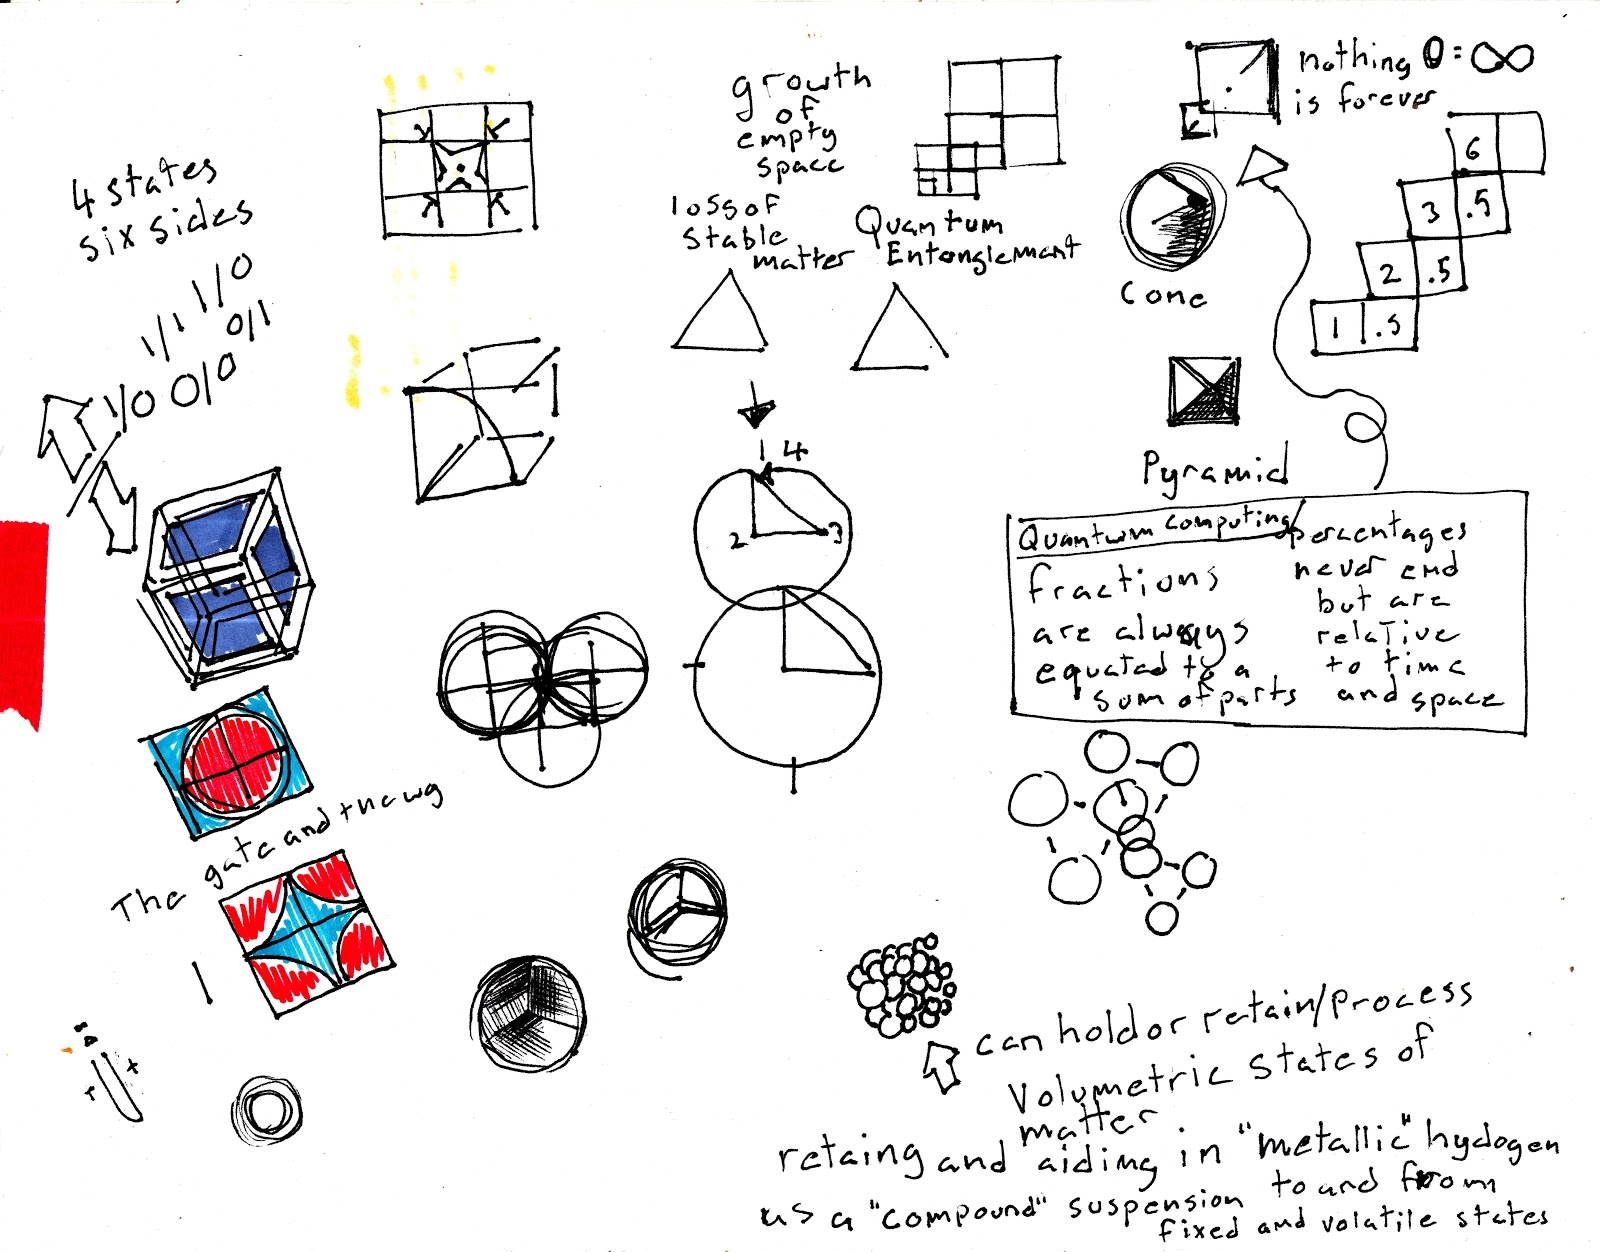 4 states
six sides
1/1 1/0
0/1
1/0 0/0
growth
of
empty
space
loss of
stable
matter
Quantum
Entanglement
nothing 0 = ∞
is forever
6
3 .5
2 .5
1 .5
Cone
Pyramid
1 4
2 3
Quantum computing/
fractions
are always
equated to a
sum of parts
percentages
never end
but are
relative
to time
and space
The gate and the
can hold or retain/process
Volumetric states of
matter
retaing and aiding in "metallic" hydogen
as a "compound" suspension to and from
fixed and volatile states